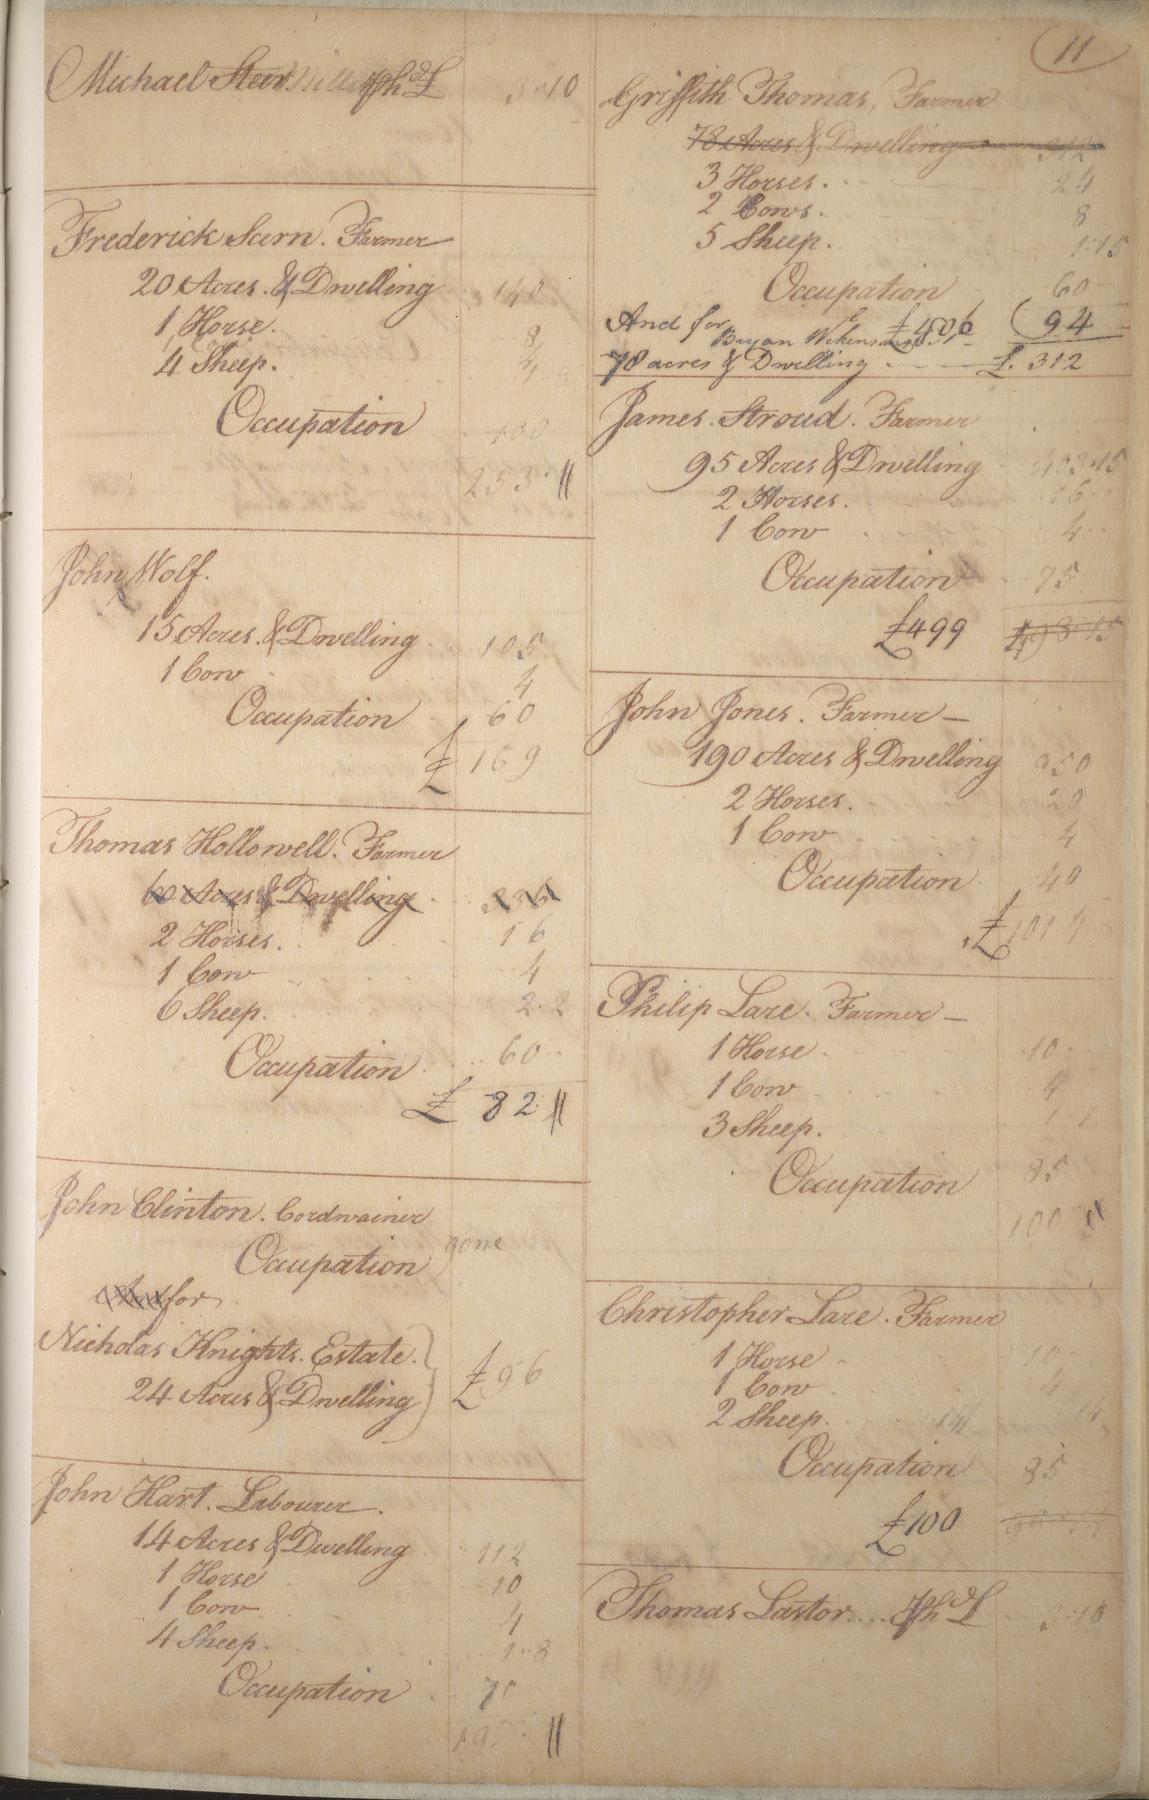 11
Michael Steer Mille ℔hd £ 3-10
Frederick Scern. Farmer
20 Acres. & Dwelling 140
1 Horse. 8
4 Sheep.
Occupation 100
253
John Wolf.
15 Acres. & Dwelling 105
1 Cow 4
Occupation 60
£ 169
Thomas Hollowell. Farmer
60 Acres & Dwelling 336
2 Horses. 16
1 Cow 4
6 Sheep. 2.2
Occupation 60
£ 82 "
John Clinton. Cordwainer
Occupation gone
And for
Nicholas Knights. Estate.
24 Acres & Dwelling £96
John Hart. Labourer.
14 Acres & Dwelling 112
1 Horse 10
1 Cow 4
4 Sheep. 1-8
Occupation 70
197 "
Griffith Thomas, Farmer
78 Acres & Dwelling 312
3 Horses. 24
2 Cows. 8
5 Sheep. 1.15
Occupation 60
£406 94
And for
Bryan Wilkensons Est
78 acres & Dwelling £. 312
James. Stroud. Farmer
95 Acres & Dwelling 403.15
2 Horses. 16
1 Cow 4
Occupation 75
£499 498.15
John Jones. Farmer
190 Acres & Dwelling 950
2 Horses. 20
1 Cow 4
Occupation 40
£1014
Philip Lare. Farmer
1 Horse 10
1 Cow 4
3 Sheep. 1.1
Occupation 85
100
Christopher Lare. Farmer
1 Horse 10
1 Cow 4
2 Sheep. 14/ 14
Occupation 85
£100
Thomas Lastor.... ℔hd £ 3.10